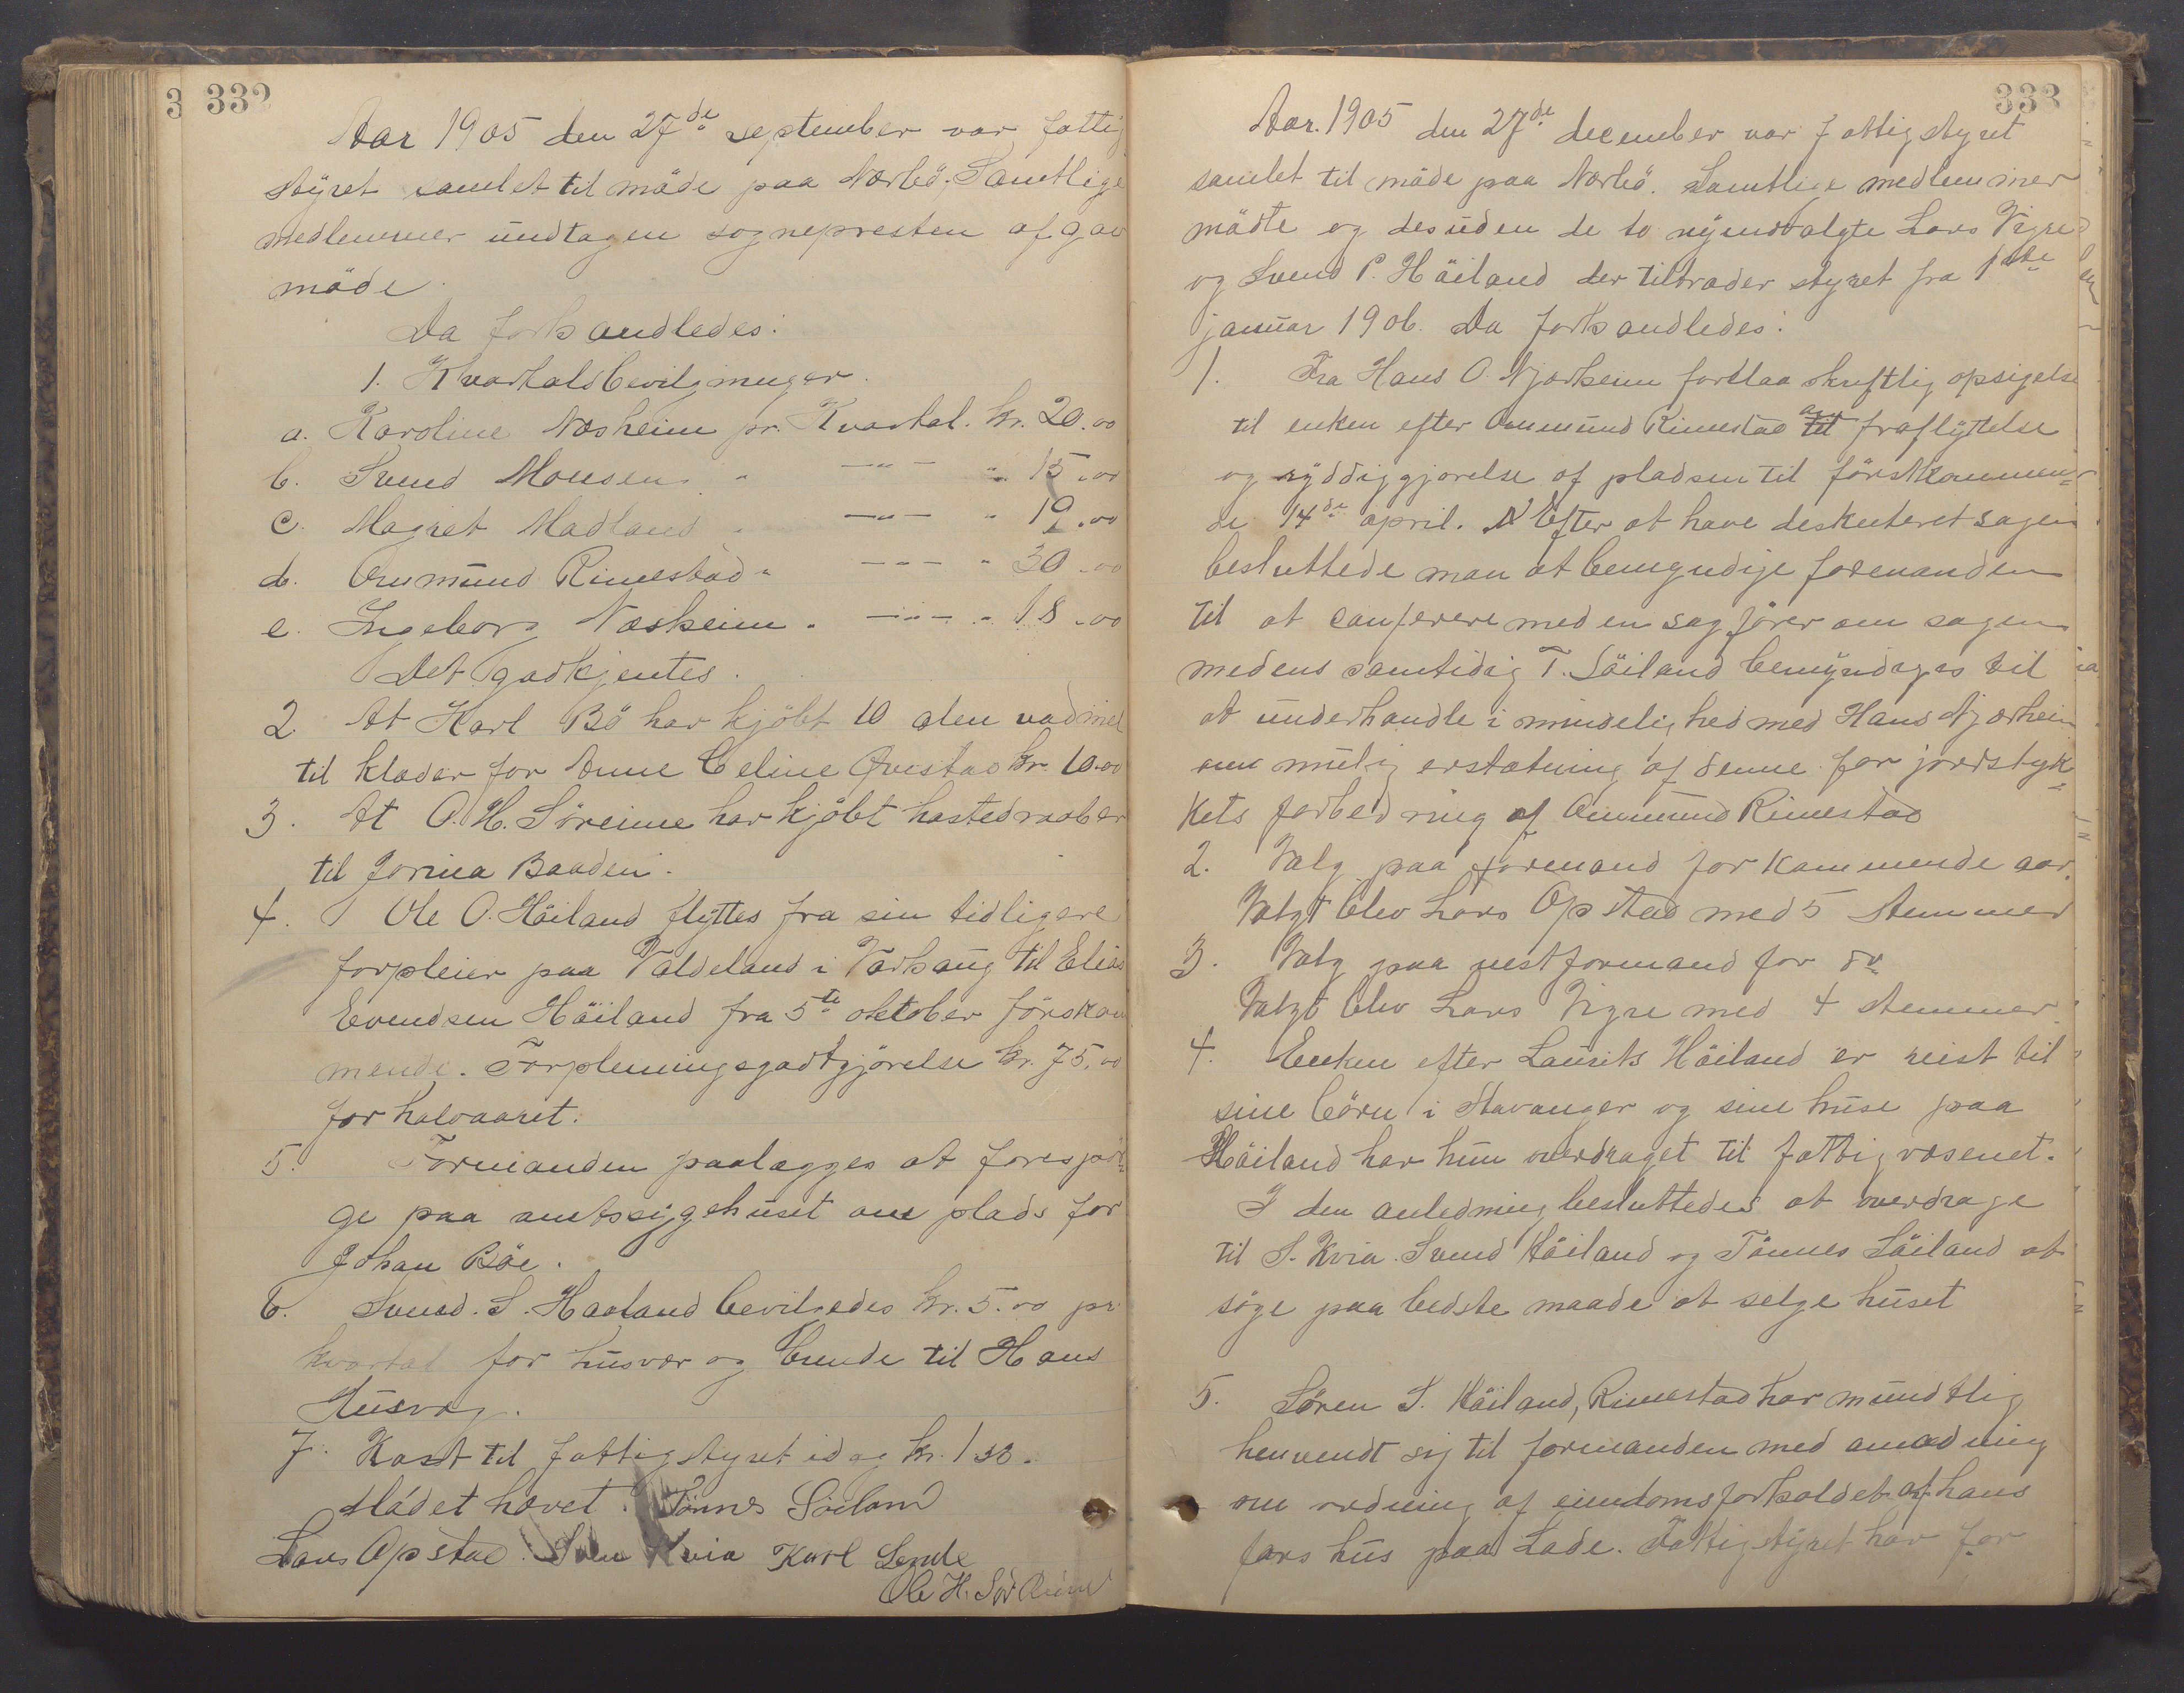 332
Aar 1905 den 27de september var fattig
styret samlet til möde paa Nærbö, Samtlige
medlemmer undtagen sognepresten af gav
möde.
Da forhandledes:
1. Kvartalsbevilgninger.
a. Karoline Næsheim pr. Kvartal. kr. 20.00
b. Svend Monsen " —"— " 15.00
c. Magret Madland " —"— " 19.00
d. Ommund Rimestad " —"— " 30.00
e. Ingeborg Næsheim " —"— " 18.00
Det godkjentes.
2. At Karl Bö har kjöbt 10 alen vadmel
til klæder for Anne Celine Qvestad kr. 10.00
3. At O. H. Söreime har kjöbt hostedraaber
til Jorina Baaden.
4. Ole O. Höiland flyttes fra sin tidligere
forpleier paa Valdeland i Varhaug til Elias
Evendsen Höiland fra 5te oktober förskom
mende. Forpleiningsgodtgjörelse kr. 75.00
for halvaaret.
5. Formanden paalægges at forespör-
ge paa amtssygehuset om plads for
Johan Böe.
6. Svend. S. Haaland bevilgedes kr. 5.00 pr.
kvartal for husvær og brende til Hans
Husvæg.
7. Kost til fattigstyret idag kr. 1.30.
Mödet hævet. Tönnes Söiland
Lars Opstad. Sven Kvia Karl Lende
Ole H. Sör Reime
333
Aar. 1905 den 27de december var fattigstyret
samlet til möde paa Nærbö. Samtlige medlemmer
mödte og desuden de to nyindvalgte Lars Vigre
og Svend P. Höiland der tiltræder styret fra 1ste
januar 1906. Da forhandledes:
1. Fra Hans O. Njærheim forelaa skriftlig opsigelse
til enken efter Ommund Rimestad til om fraflyttelse
og ryddiggjørelse af pladsen til förstkommen-
de 14de april. Efter at have deskuteret sagen
besluttede man at bemyndige formanden
til at conferere med en sagförer om sagen
medens samtidig T. Söiland bemyndiges til
at underhandle i mindelighed med Hans Njærheim
om mulig erstatning af denne for jordstyk-
kets forbedring af Ommund Rimestad
2. Valg paa formand for kommende aar.
Valgt blev Lars Opstad med 5 stemmer
3. Valg paa nestformand for do
Valgt blev Lars Vigre med 4 stemmer.
4. Enken efter Laurits Höiland er reist til
sine börn i Stavanger og sine huse paa
Höiland har hun overdraget til fattigvæsenet.
I den anledning besluttedes at overdrage
til S. Kvia. Svend Höiland og Tönnes Söiland at
söge paa bedste maade at selge huset
5. Sören S. Höiland, Rimestad har mundtlig
henvendt sig til formanden med anmodning
om ordning af eiendomsforholdet af hans
fars hus paa Lade. Fattigstyret har for